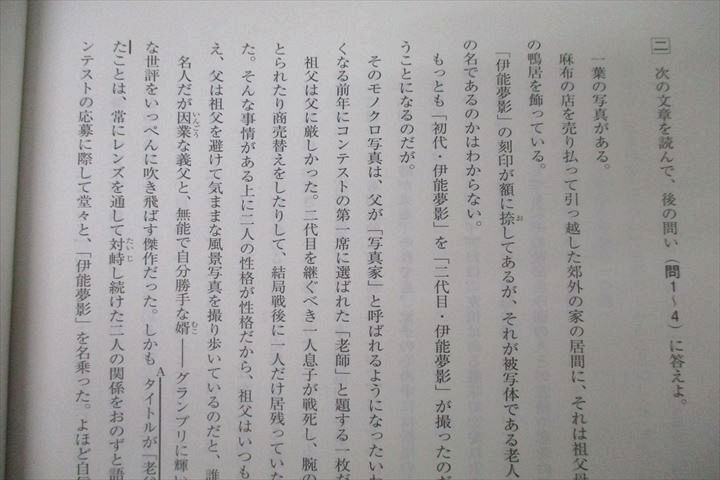 二 次の文章を読んで、後の問い（問1～4）に答えよ。
一葉の写真がある。
麻布の店を売り払って引っ越した郊外の家の居間に、それは祖父母
の鴨居を飾っている。
「伊能夢影」の刻印が額に捺してあるが、それが被写体である老人
の名であるのかはわからない。
もっとも「初代・伊能夢影」を「二代目・伊能夢影」が撮ったのだ
うことになるのだが。
そのモノクロ写真は、父が「写真家」と呼ばれるようになったいわ
くなる前年にコンテストの第一席に選ばれた「老師」と題する一枚だ
祖父は父に厳しかった。二代目を継ぐべき一人息子が戦死し、腕の
とられたり商売替えをしたりして、結局戦後に一人だけ居残っていた
た。そんな事情がある上に二人の性格が性格だから、祖父はいつも
え、父は祖父を避けて気ままな風景写真を撮り歩いているのだと、誰
名人だが因業な義父と、無能で自分勝手な婿――グランプリに輝い
な世評をいっぺんに吹き飛ばす傑作だった。しかもAタイトルが「老
たことは、常にレンズを通して対峙し続けた二人の関係をおのずと語
ンテストの応募に際して堂々と、「伊能夢影」を名乗った。よほど自